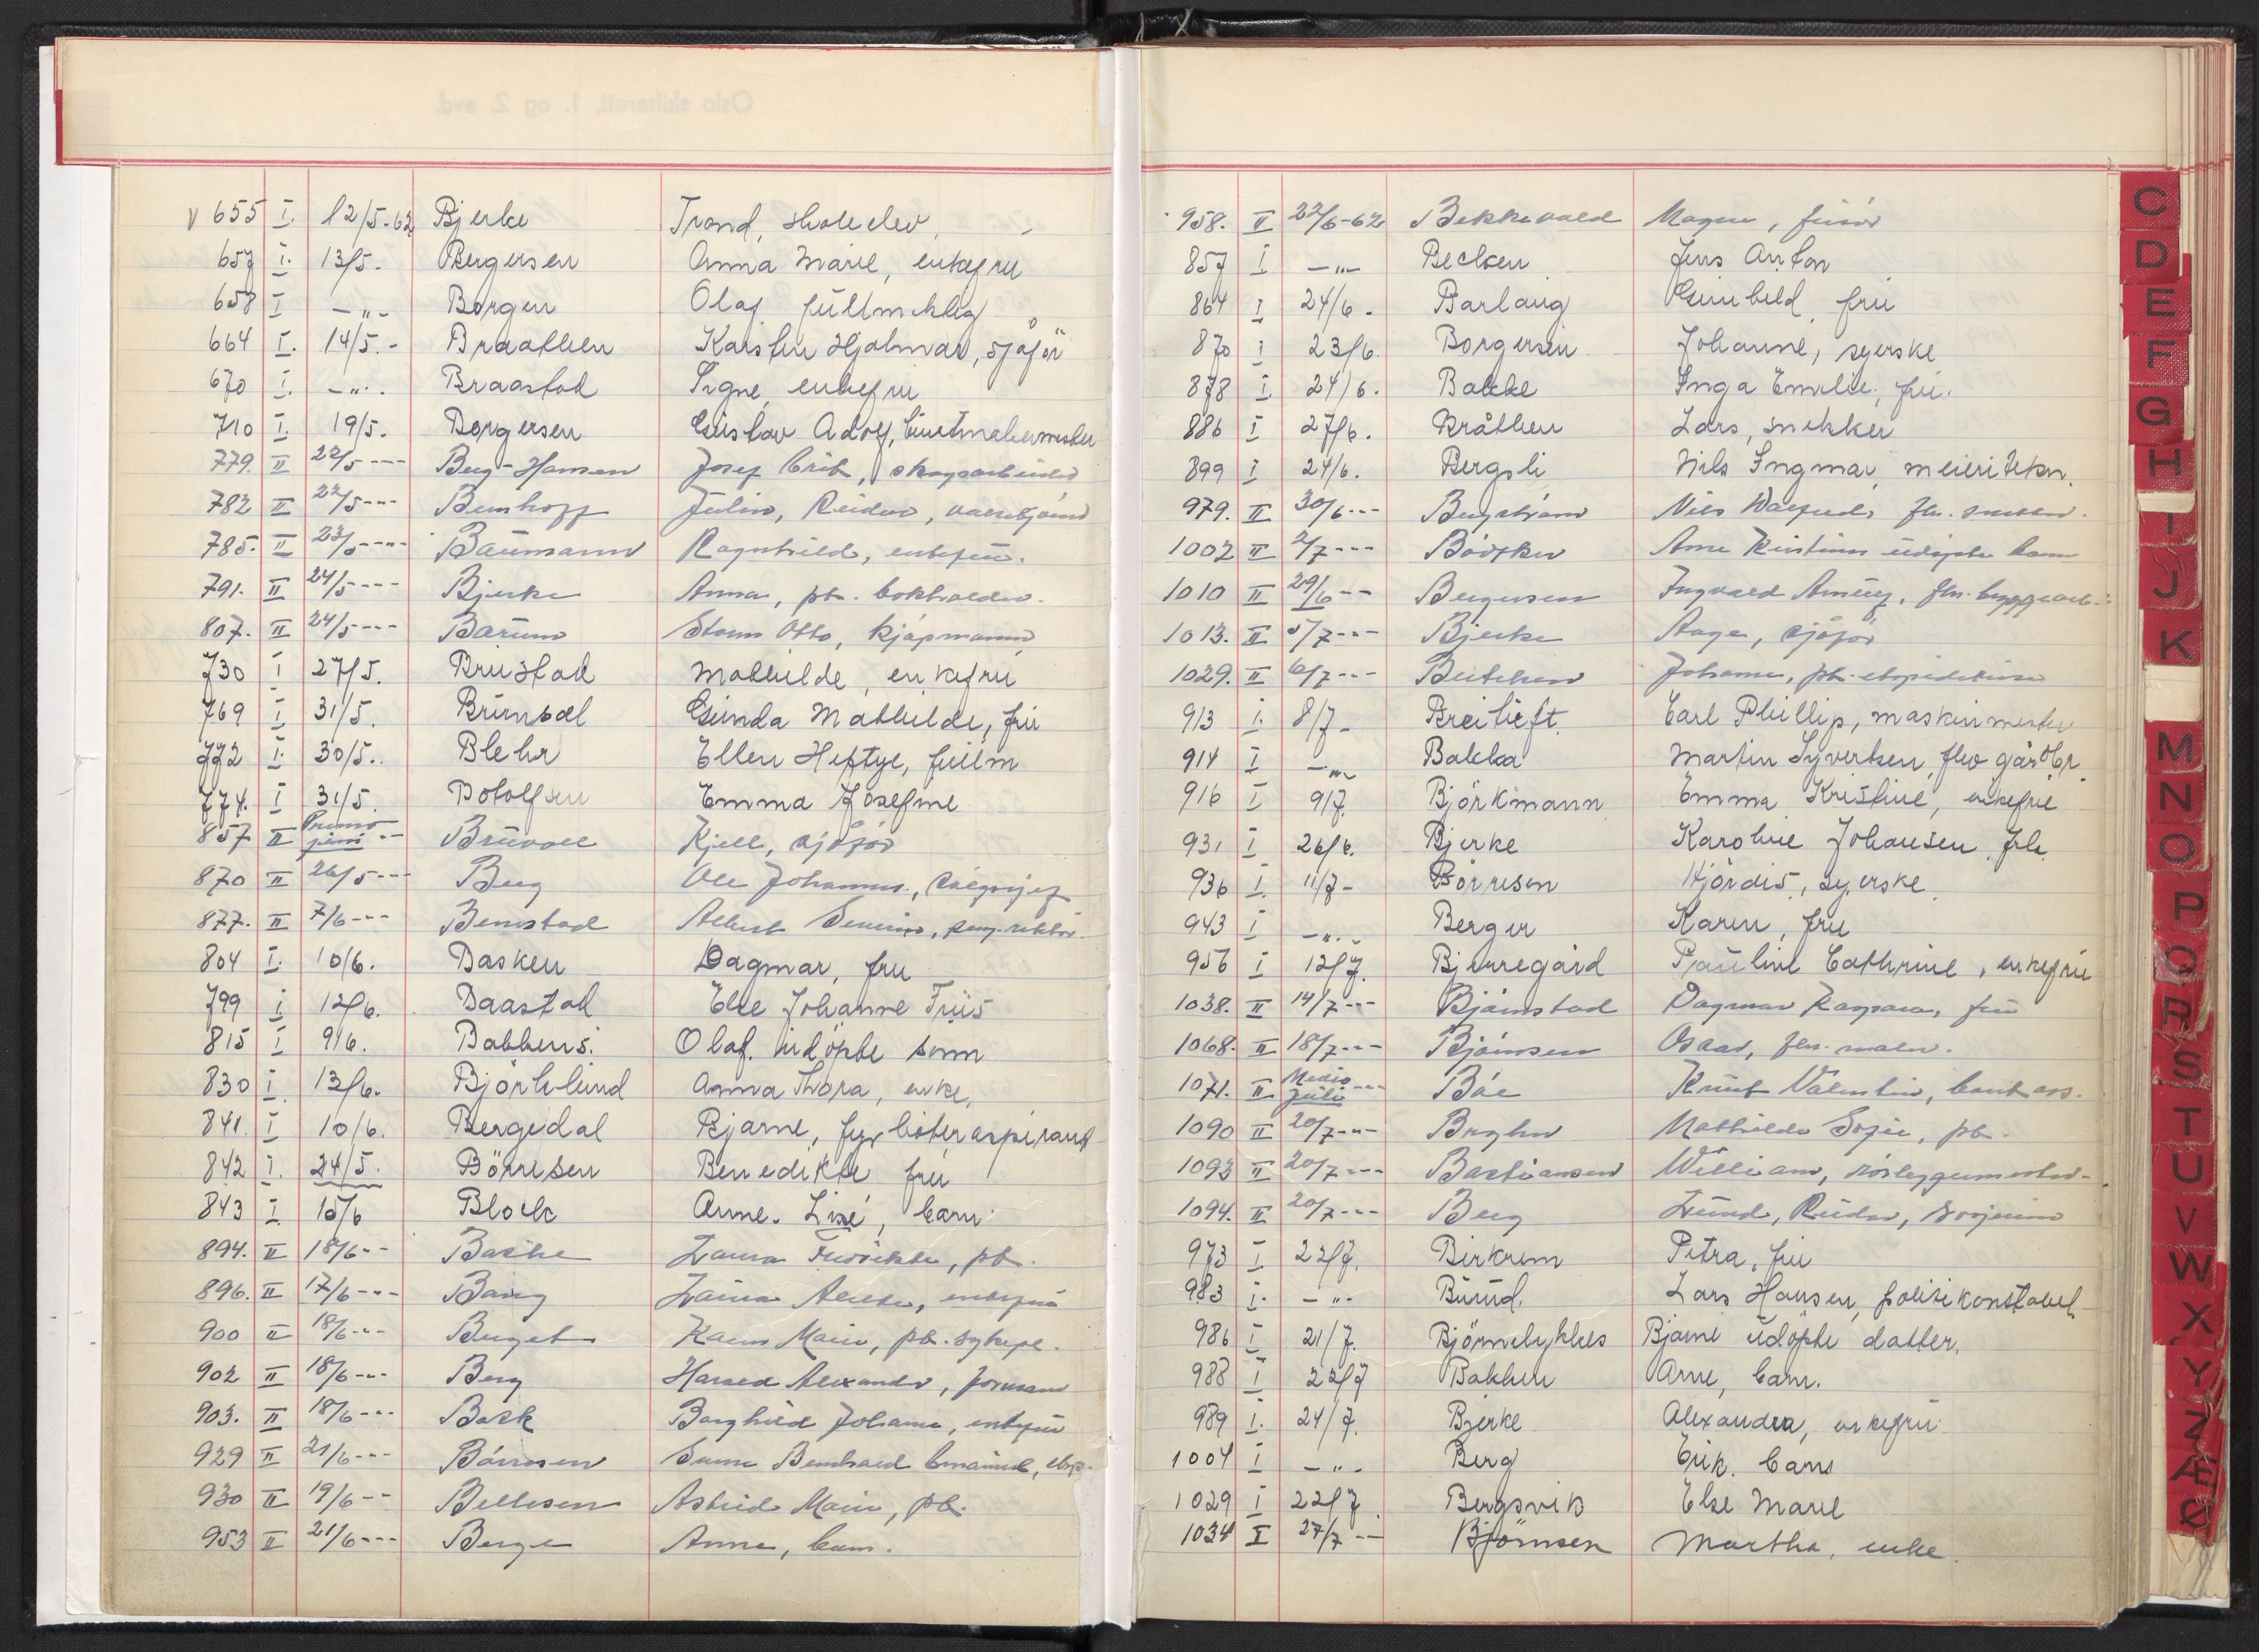 Oslo skifterett, 1. og 2. avd.
V 655 I. 12/5-62 Bjerke Trond, skoleelev
657 I. 13/5. Bergersen Anna Marie, enkefru
658 I -"- Borgen Olaf fullmektig
664 I. 14/5.- Braathen Karsten Hjalmar, sjåfør
670 I. -"- Braastad Signe, enkefru
710 I. 19/5. Borgersen Gustav Adolf,
779. II 22/5 --- Berg-Hansen Josef Erik, skogsarbeider
782 II 22/5 --- Bernhoff Julin, Reidar,
785. II 23/5 --- Baumann Ragnhild, enkefru.
791. II 24/5 --- Bjerke Anna, pb. bokholder.
807. II 24/5 --- Bærum Storm Otto, kjøpmann
730 I 27/5. Brustad Mathilde, enkefru
769 I 31/5. Gunda Mathilde, fru
772 I. 30/5.. Blehr Ellen Heftye, fullm
774. I 31/5. Botolfsen Emma Josefine
857 II Primo juni -- Bruvoll Kjell, sjåfør
870 II 26/5 --- Berg Ole Johannes, salgssjef
877. II 7/6 --- Bernstad Albert Severin, pens. rektor.
804 I. 10/6. Basken Dagmar, fru
799 I. 12/6. Baastad Else Johanne Friis
815 I 9/6. Bakkens. Olaf. udöpte sönn
830 I. 13/6. Björklund Anna Thora, enke.
841. I 10/6. Bergedal Bjarne, fyrböteraspirant
842 I. 24/5. Börresen Benedikte fru
843 I. 15/6 Block Anne-Lise, barn
894. II 18/6 -- Bache Laura Fredrikke, pb.
896. II 17/6 --- Bang Laura enkefru
900 II 18/6 --- Karen Marie, pb. sykepl.
902 II 18/6 --- Berg Harald Alexander, formann
903. II 18/6 --- Bask Borghild Johanne, enkefru
929 II 21/6 --- Børresen Bernhard Emanuel, eksp.
930 II 19/6 -- Bellesen Astrid Marie, pb.
953 II 21/6 --- Berge Anne, barn.
958. II 22/6-62 Bekkevold Magne, frisør
857 I -"- Becken Jens Anton
864 I 24/6. Barlaug Gunhild, fru
870 I 23/6. Borgersen Johanne, syerske
878 I. 24/6. Bakke Inga Emilie, fru.
886 I 27/6. Bråthen Lars, snekker
899 I 24/6. Bergsli Nils Ingmar, meieritekn.
979. II 30/6 --- Bergstrøm Nils Walfred, fhv. snekker.
1002 II 2/7 --- Bødtker Anne Kristines udøpte barn
1010 II 29/6 -- Bergersen Ingvald Amling, fhv. byggearb.
1013. II 5/7 --- Bjerke Aage, sjåfør
1029. II 6/7 --- Johanne, pb. ekspeditrise
913 I. 8/7- Breitieft. Carl Phillip, maskinmester
914 I -"- Bakka Martin Syvertsen, fhv gårdbr.
916 I 9/7. Björkmann Emma Kristine, enkefrue
931 I 26/6. Bjerke Karoline Johansen, frk.
936 I. 11/7- Börresen Hjördis, syerske
943 I -"- Berger Karen, fru
956 I 12/7. Bjerregård Pauline Cathrine, enkefru
1038. II 14/7 --- Bjørnstad Dagmar Kaspara, fru
1068. II 18/7 --- Bjørnsen Oscar, fhv. maler.
1071. II Medio juli --- Bøe Knut Valentin, bankass.
1090 II 20/7 --- Mathilde Sofie, pb.
1093 II 20/7 --- Bastiansen William, rørleggermester.
1094. II 20/7 --- Berg Lund, Reidar,
973 I 22/7. Birkrem Petra, fru
983 I. -"- Burud. Lars Hansen, politikonstabel
986 I 21/7. Björnelykkes Bjarne udöpte datter.
988 I 22/7 Bakken Arne, barn.
989 I. 24/7. Bjerke Alexandra, enkefru
1004 I -"- Berg Erik. barn
1029 I 22/7. Bergsvik Else Marie
1034 I 27/7 -- Björnsen Martha, enke.
C
D
E
F
G
H
I
J
K
M
N
O
P
Q
R
S
T
U
V
W
X
Y
Z
Æ
Ø